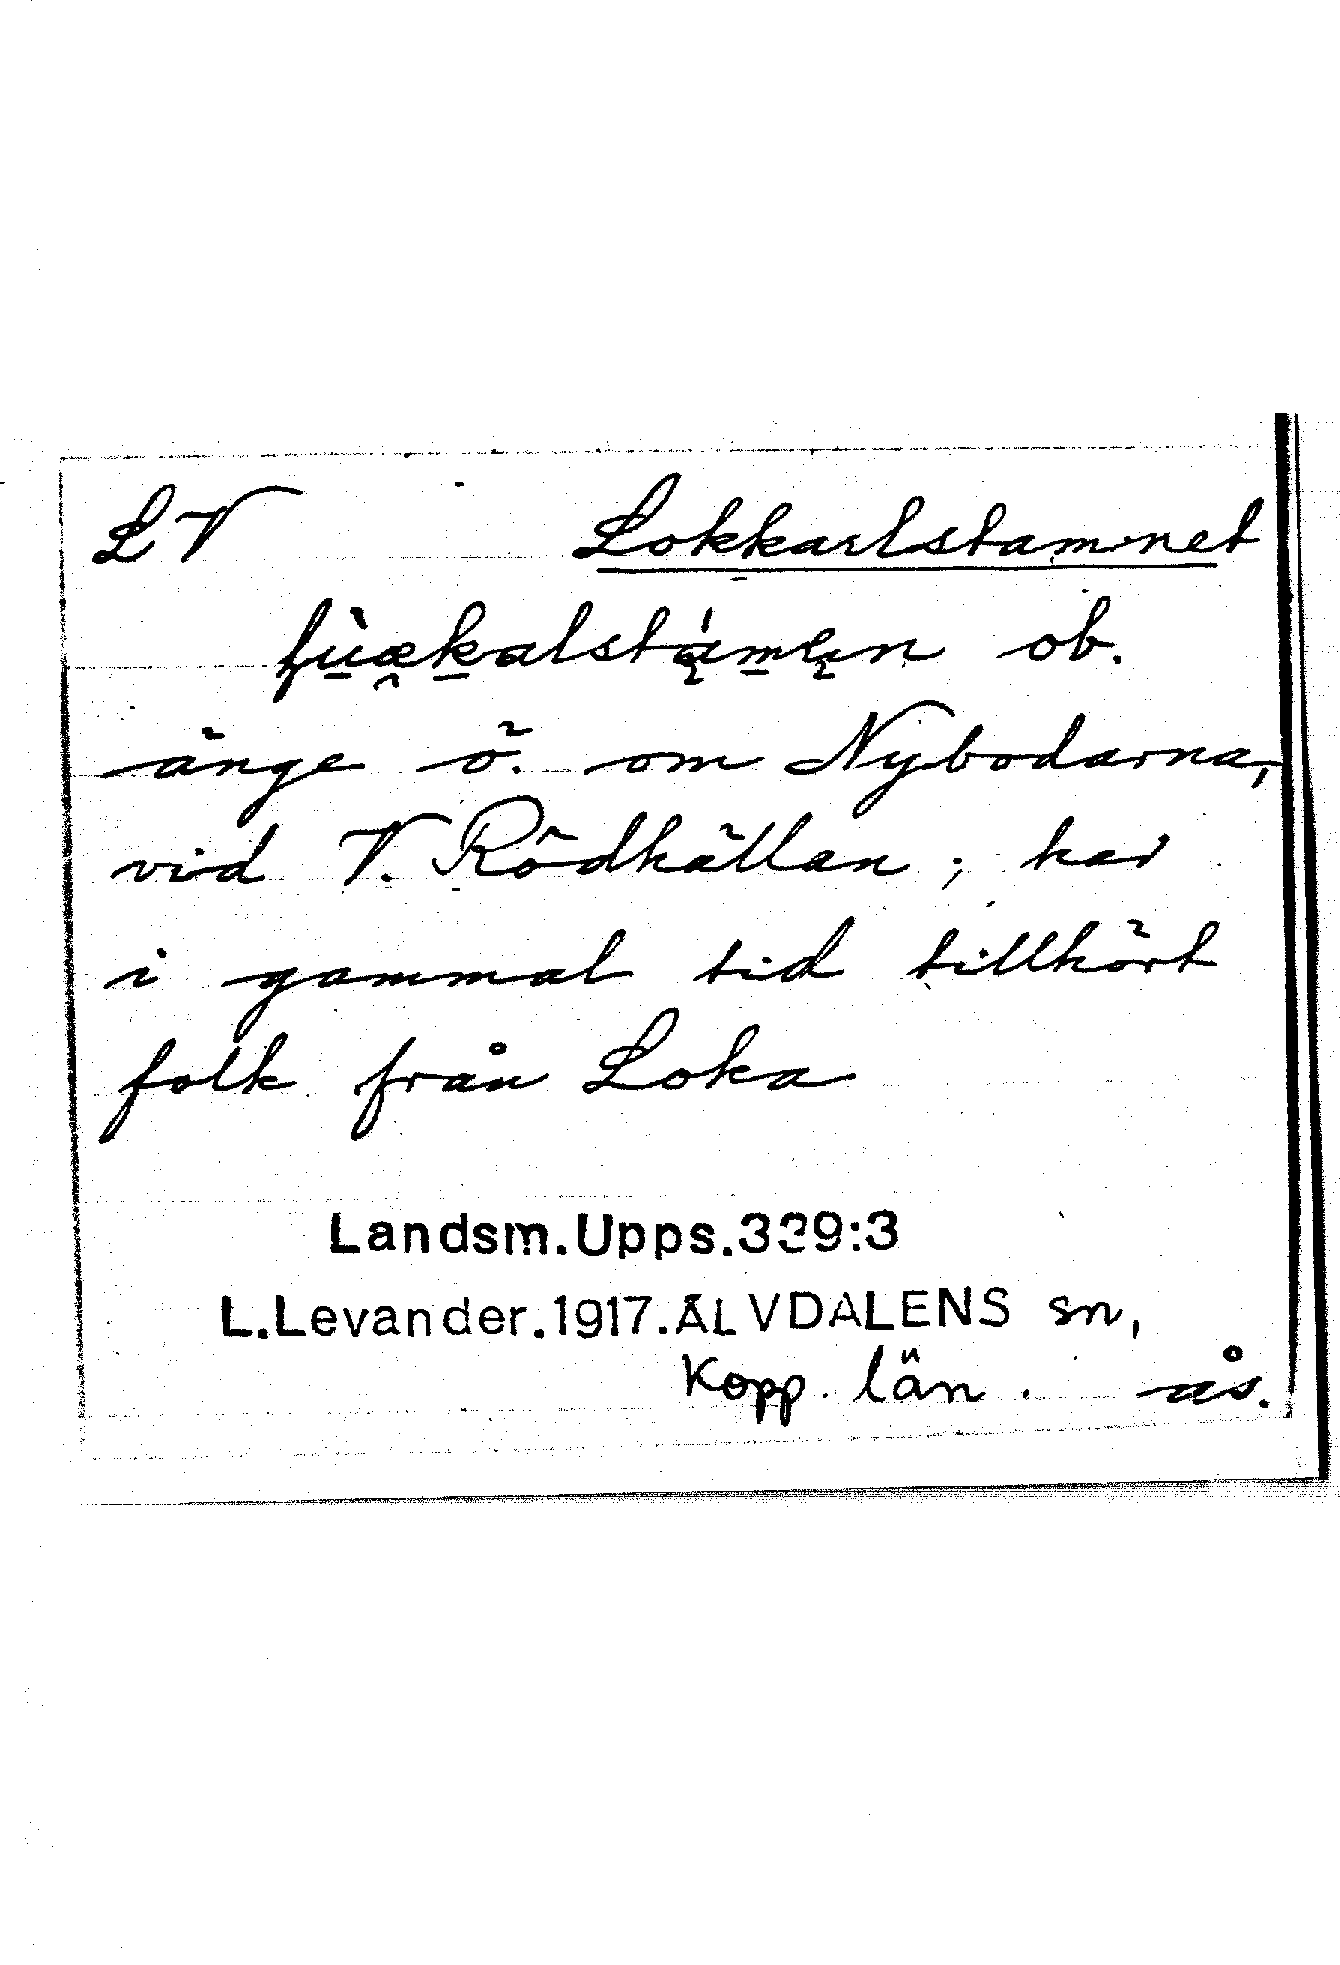 LV Lokkarlstamnet
ob.
änge ö. om Nybodarna,
vid V. Rödhällan; har
i gammal tid tillhört
folk från Loka
Landsm.Upps.339:3
L.Levander.1917.ÄLVDALENS sn,
Kopp. län. ås.